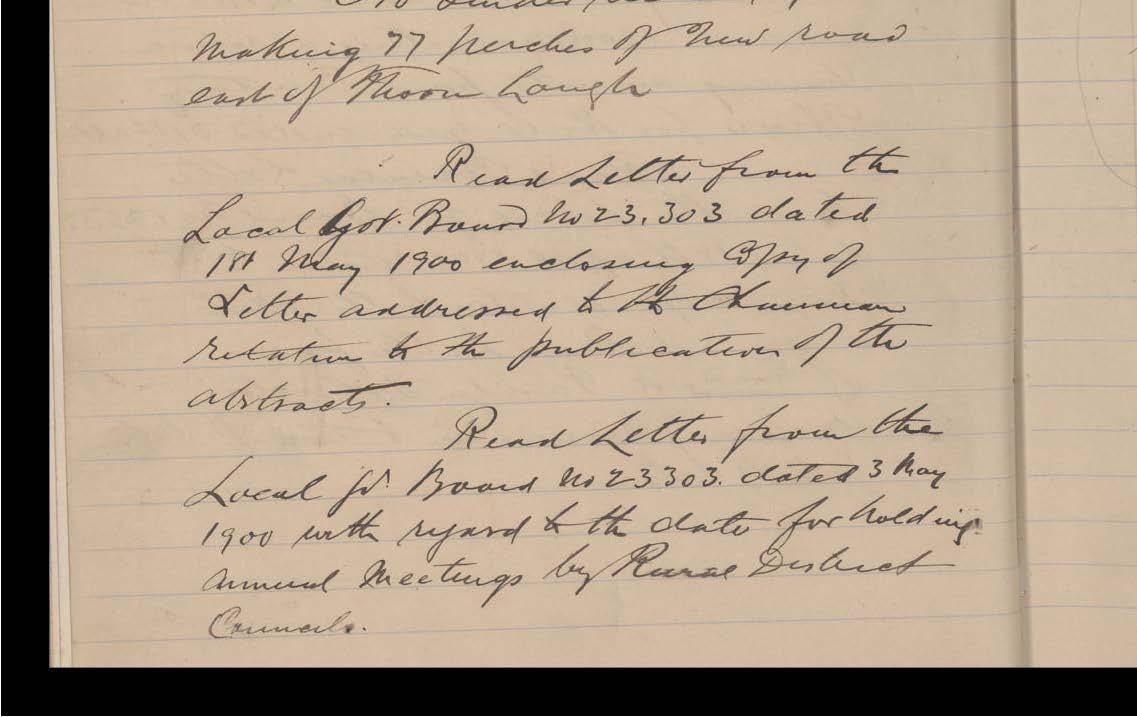 No Tender
making 77 perches of new road
east of Lough
Read Letter from the
Local Gov. Board No 23,303 dated
1st May 1900 enclosing Copy of
Letter addressed to the Chairman
relative to the publication of the
abstracts.
Read Letter from the
Local Gd. Board No 23303. dated 3 May
1900 with regard to the date for holding
annual Meetings by Rural District
Councils.